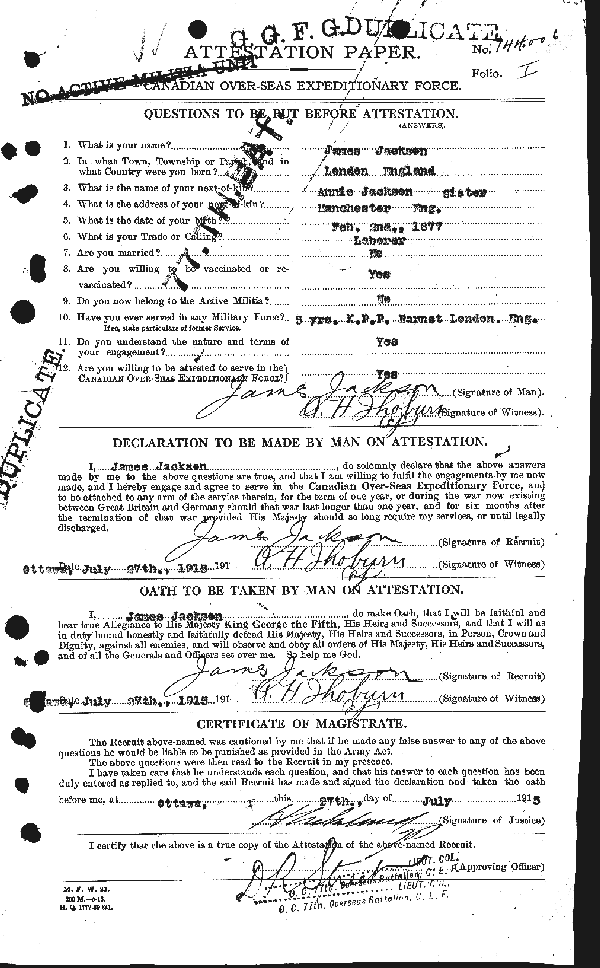 G. G. F. G. DUPLICATE
ATTESTATION PAPER.
No.
Folio. I
NO ACTIVE MILITIA UNIT
CANADIAN OVER-SEAS EXPEDITIONARY FORCE.
QUESTIONS TO BE PUT BEFORE ATTESTATION.
(ANSWERS).
1. What is your name? James Jackson
2. In what Town, Township or Parish, and in
what Country were you born? London England
3. What is the name of your next-of-kin? Annie Jackson sister
4. What is the address of your next-of-kin? Manchester Eng.
5. What is the date of your birth? Feb. 2nd., 1877
6. What is your Trade or Calling? Laborer
7. Are you married? No
8. Are you willing to be vaccinated or re-
vaccinated? Yes
9. Do you now belong to the Active Militia? No
10. Have you ever served in any Military Force? 5 yrs. K.P.P. Barnet London. Eng.
If so, state particulars of former Service.
11. Do you understand the nature and terms of
your engagement? Yes
12. Are you willing to be attested to serve in the
CANADIAN OVER-SEAS EXPEDITIONARY FORCE? Yes
77th BAT.
DUPLICATE.
James Jackson (Signature of Man).
O H Thoburn (Signature of Witness).
DECLARATION TO BE MADE BY MAN ON ATTESTATION.
I, James Jackson, do solemnly declare that the above answers
made by me to the above questions are true, and that I am willing to fulfil the engagements by me now
made, and I hereby engage and agree to serve in the Canadian Over-Seas Expeditionary Force, and
to be attached to any arm of the service therein, for the term of one year, or during the war now existing
between Great Britain and Germany should that war last longer than one year, and for six months after
the termination of that war provided His Majesty should so long require my services, or until legally
discharged.
James Jackson (Signature of Recruit)
Ottawa, Date July 27th., 1915 191 O H Thoburn (Signature of Witness)
OATH TO BE TAKEN BY MAN ON ATTESTATION.
I, James Jackson, do make Oath, that I will be faithful and
bear true Allegiance to His Majesty King George the Fifth, His Heirs and Successors, and that I will as
in duty bound honestly and faithfully defend His Majesty, His Heirs and Successors, in Person, Crown and
Dignity, against all enemies, and will observe and obey all orders of His Majesty, His Heirs and Successors,
and of all the Generals and Officers set over me. So help me God.
James Jackson (Signature of Recruit)
Ottawa, Date July 27th., 1915 191 O H Thoburn (Signature of Witness)
CERTIFICATE OF MAGISTRATE.
The Recruit above-named was cautioned by me that if he made any false answer to any of the above
questions he would be liable to be punished as provided in the Army Act.
The above questions were then read to the Recruit in my presence.
I have taken care that he understands each question, and that his answer to each question has been
duly entered as replied to, and the said Recruit has made and signed the declaration and taken the oath
before me, at Ottawa, this 27th., day of July 1915
(Signature of Justice)
I certify that the above is a true copy of the Attestation of the above-named Recruit.
LIEUT. COL.
(Approving Officer)
O. C. 77th, Overseas Battalion, C. E. F.
LIEUT. COL.
O. C. 77th, Overseas Battalion, C. E. F.
M. F. W. 23.
200 M.—6-15.
H. Q. 1772-39-841.